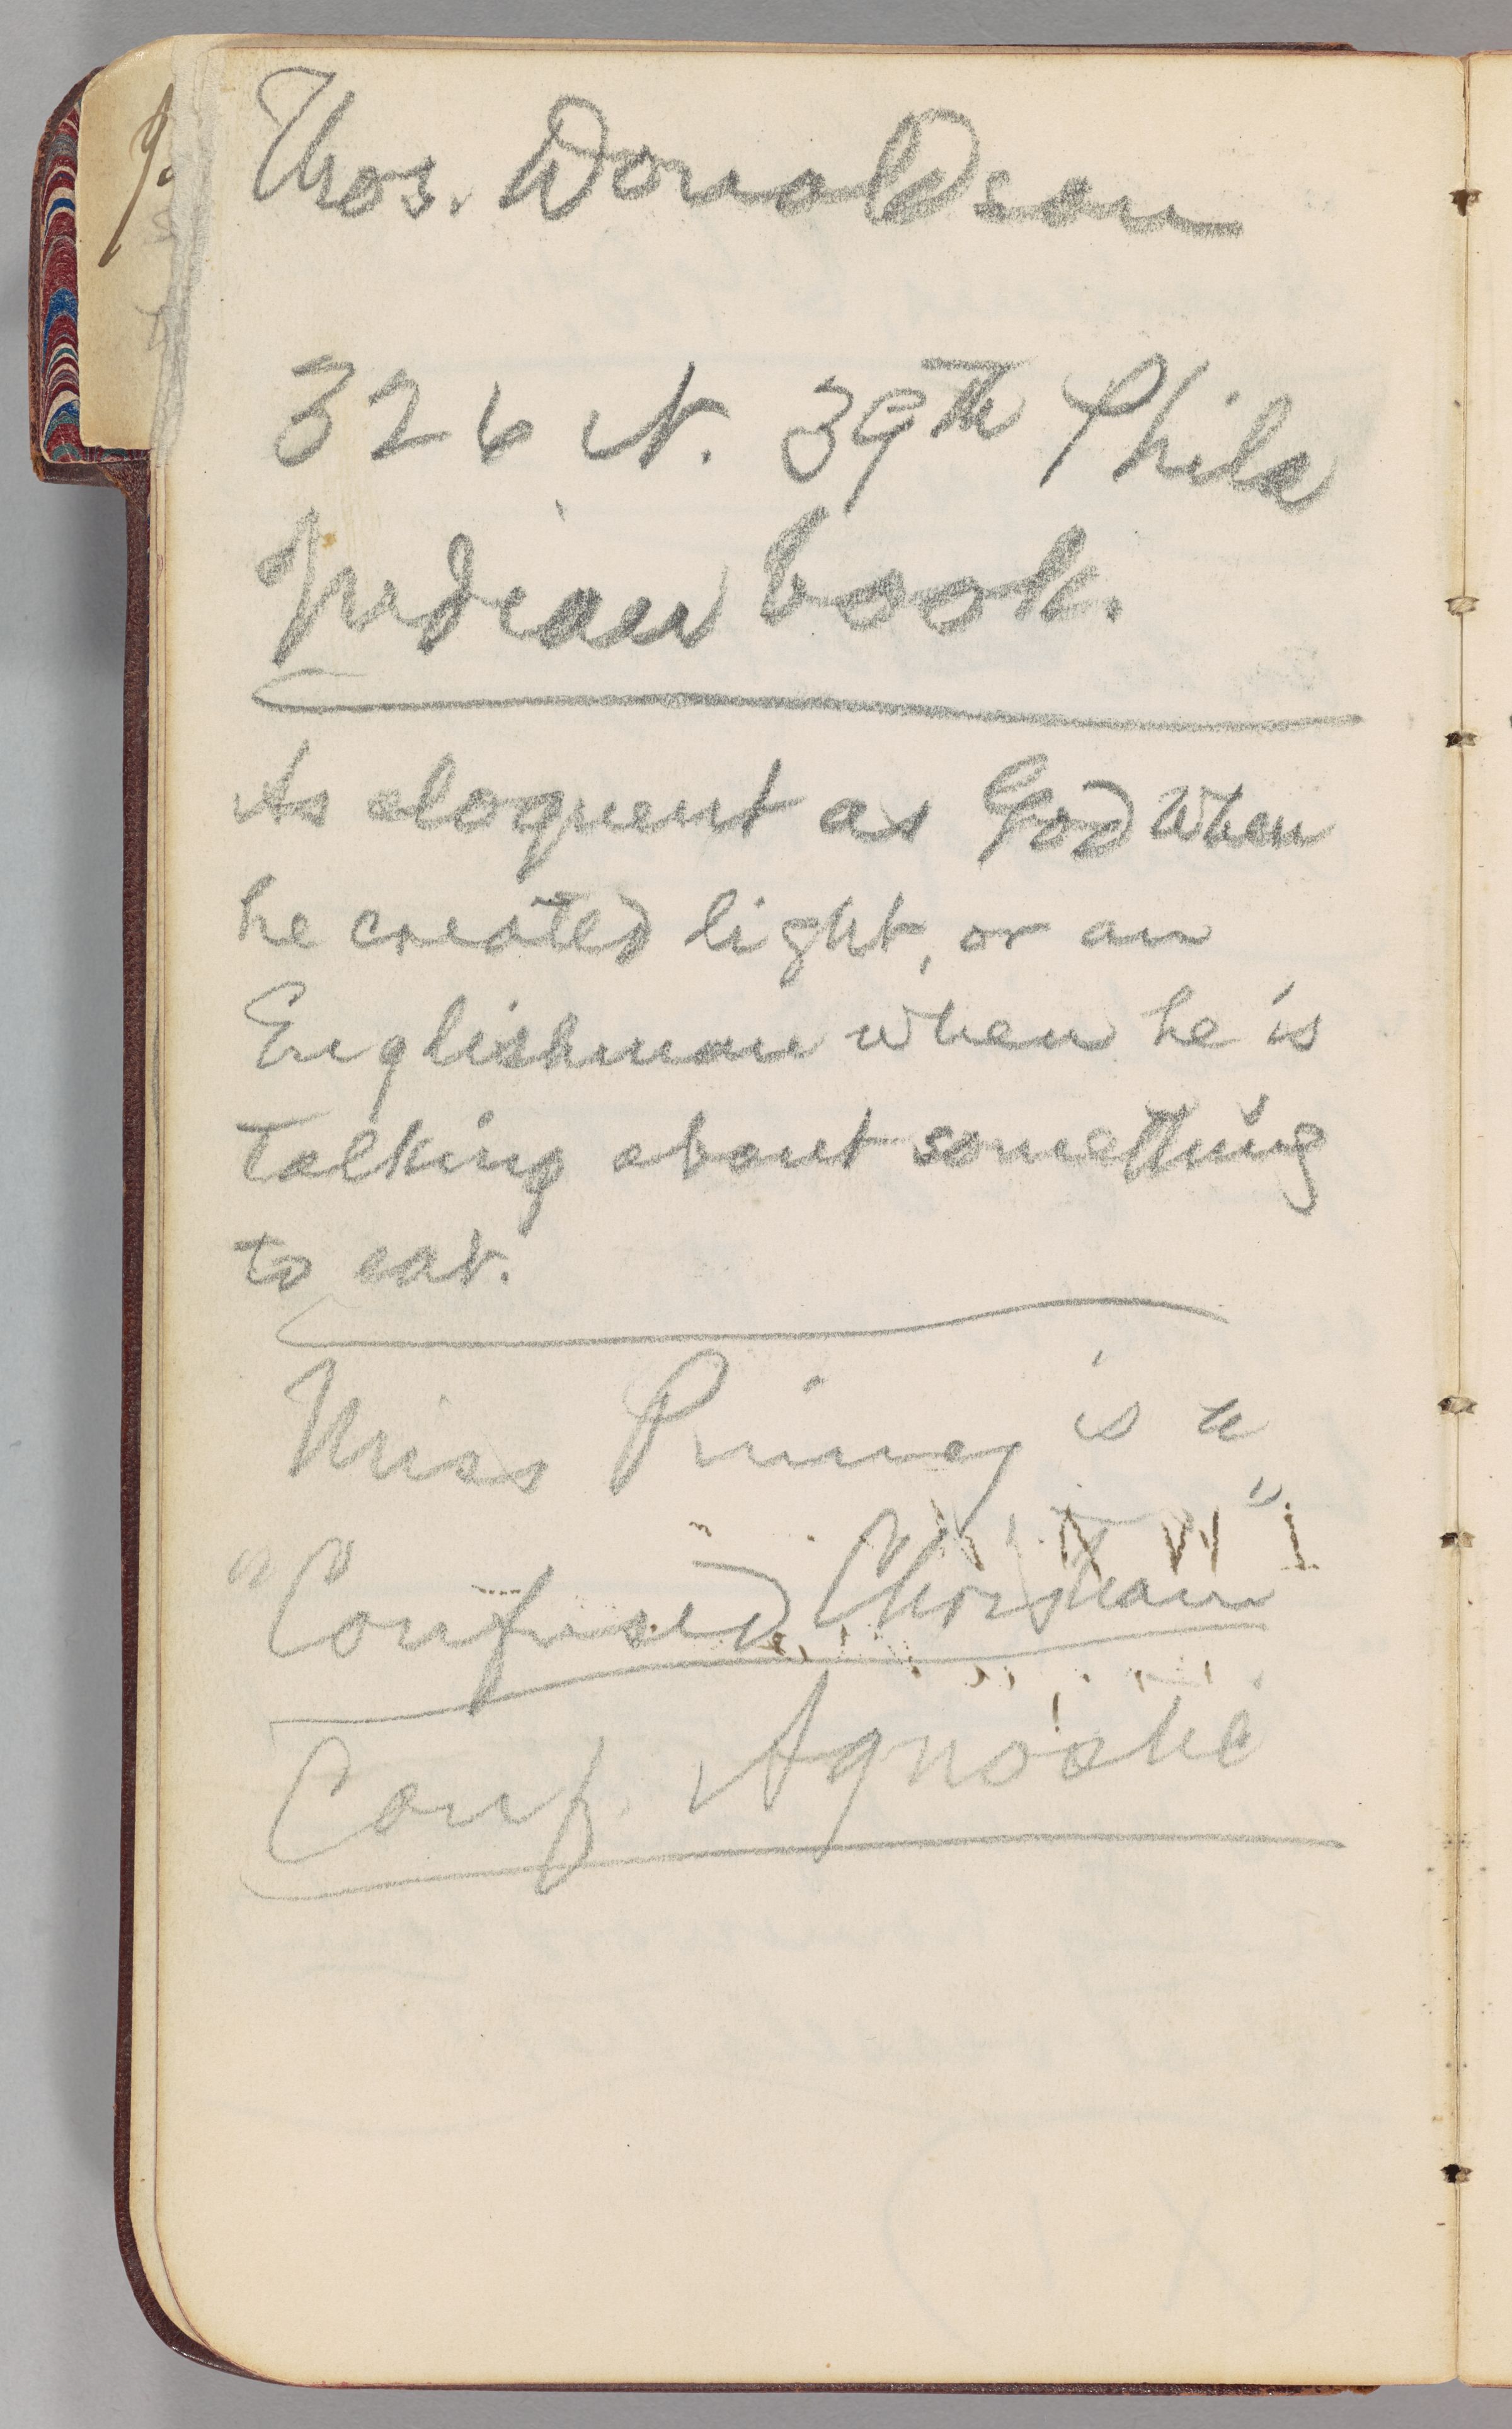 Thos. Donaldson
326 N. 39th Phila
Indian book.
As eloquent as God when
he created light, or an
Englishman when he is
talking about something
to eat.
Miss Pinney is a
"Confused Christian"
Conf. Agnostic